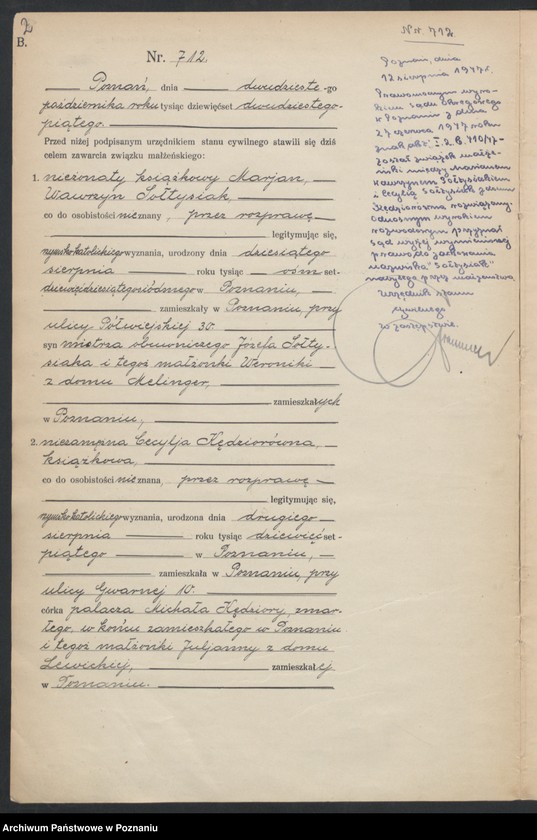 2
B.
Nr. 712.
Poznań, dnia dwudzieste-go
października roku tysiąc dziewięćset dwudziestego-
piątego.
Przed niżej podpisanym urzędnikiem stanu cywilnego stawili się dziś
celem zawarcia związku małżeńskiego:
1. nieżonaty książkowy Marjan,
Wawrzyn Sołtysiak,
co do osobistości nieznany, przez rozprawę
legitymując się,
rzymskokatolickiego wyznania, urodzony dnia dziesiątego
sierpnia roku tysiąc ośm set-
dziewiędziesiątegosiódmego w Poznaniu,
zamieszkały w Poznaniu, przy
ulicy Półwiejskiej 30.
syn mistrza obuwniczego Józefa Sołty-
siaka i tegoż małżonki Weroniki
z domu Melinger,
zamieszkałych
w Poznaniu,
2. niezamężna Cecylja Kędziorówna,
książkowa,
co do osobistości nieznana, przez rozprawę
legitymując się,
rzymskokatolickiego wyznania, urodzona dnia drugiego
sierpnia roku tysiąc dziewięćset-
piątego w Poznaniu,
zamieszkała w Poznaniu przy
ulicy Gwarnej 10.
córka palacza Michała Kędziory, zmar-
łego, w końcu zamieszkałego w Poznaniu
i tegoż małżonki Juljanny z domu
Lewickiej, zamieszkałej
w Poznaniu.
Nr. 712.
Poznań, dnia
12 sierpnia 1947 r.
Prawomocnym wyro-
kiem Sądu Okręgowego
w Poznaniu z dnia
27 czerwca 1947 roku
znak akt: I. 2. C. 410/47-
został związek małżeń-
ski między Marianem
Wawrzynem Sołtysiakiem
i Cecylią Sołtysiak z domu
Kędziorówna rozwiązany.
Odnośnym wyrokiem
rozwodowym przyznał
sąd wyżej wymienionej
prawo do zachowania
nazwiska "Sołtysiak"
nabytego przy małżeństwie.
Urzędnik stanu
cywilnego
w zastępstwie.
Archiwum Państwowe w Poznaniu